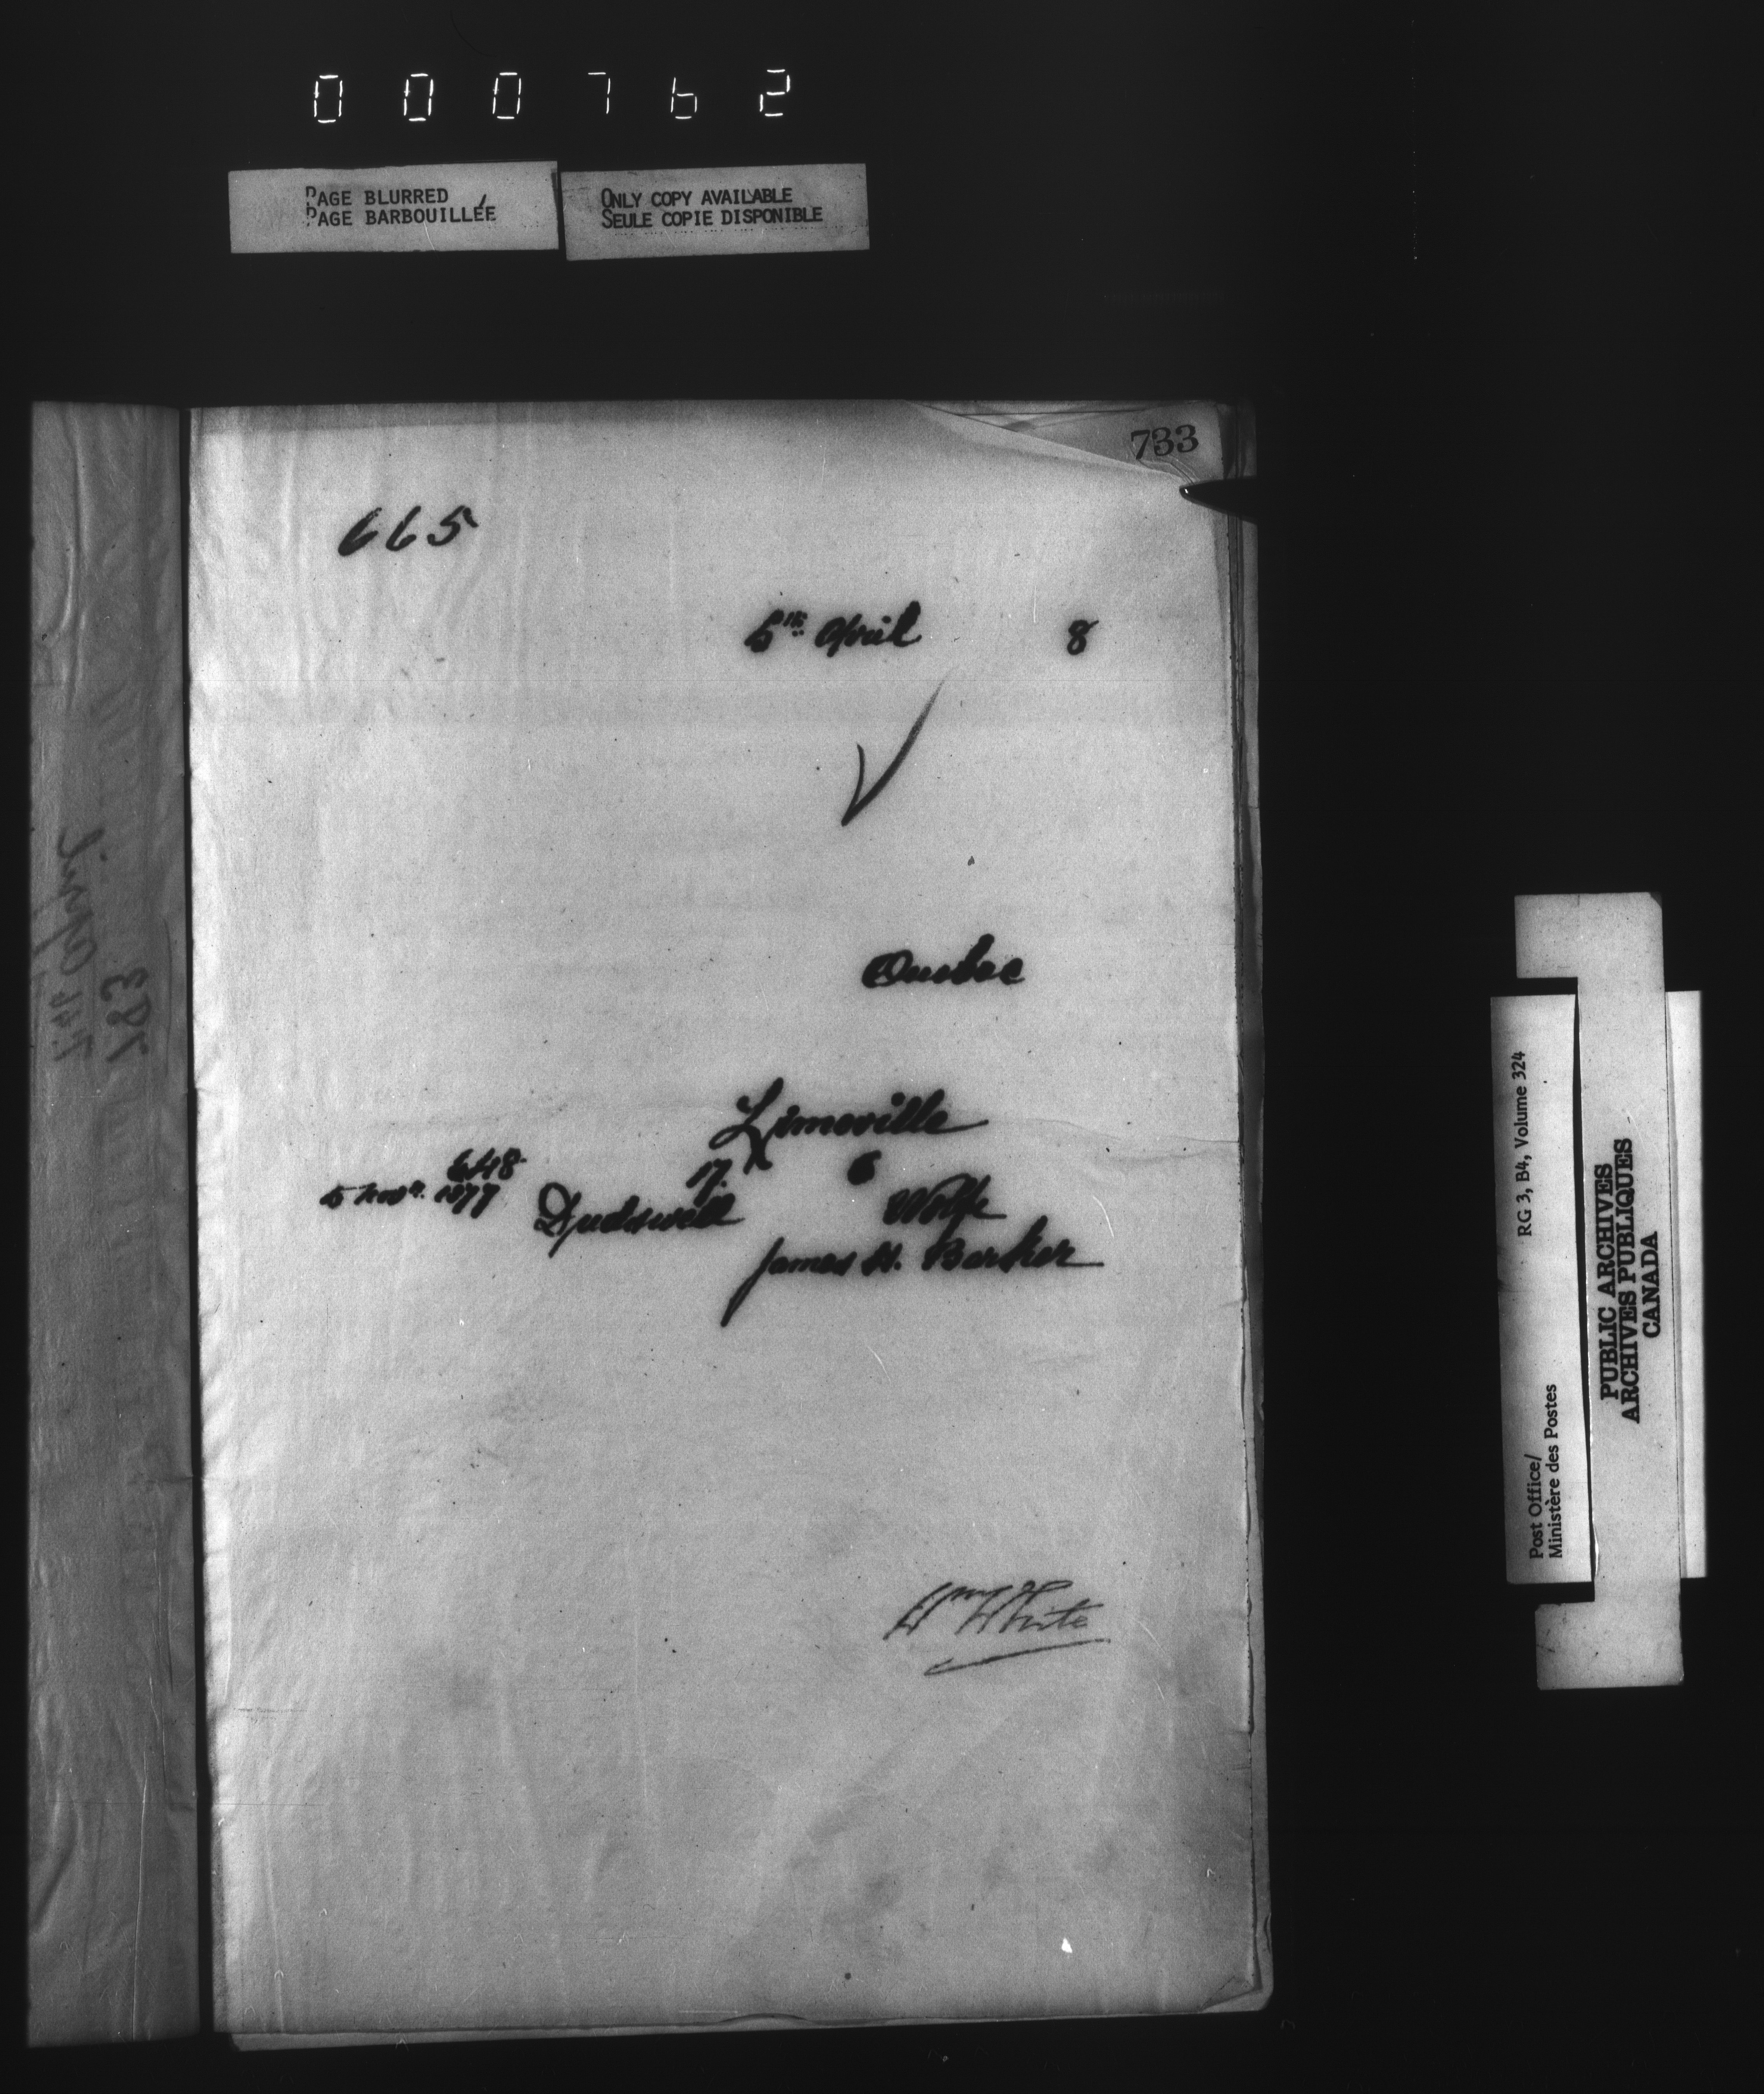 000762
PAGE BLURRED
PAGE BARBOUILLÉE
ONLY COPY AVAILABLE
SEULE COPIE DISPONIBLE
733
665
5th April 8
Quebec
Limeville
648 17 6
5 Novr. 1877 Dudswell Wolfe
James H. Barker
Wm White
7th April
783
Post Office/
Ministère des Postes
RG 3, B4, Volume 324
PUBLIC ARCHIVES
ARCHIVES PUBLIQUES
CANADA